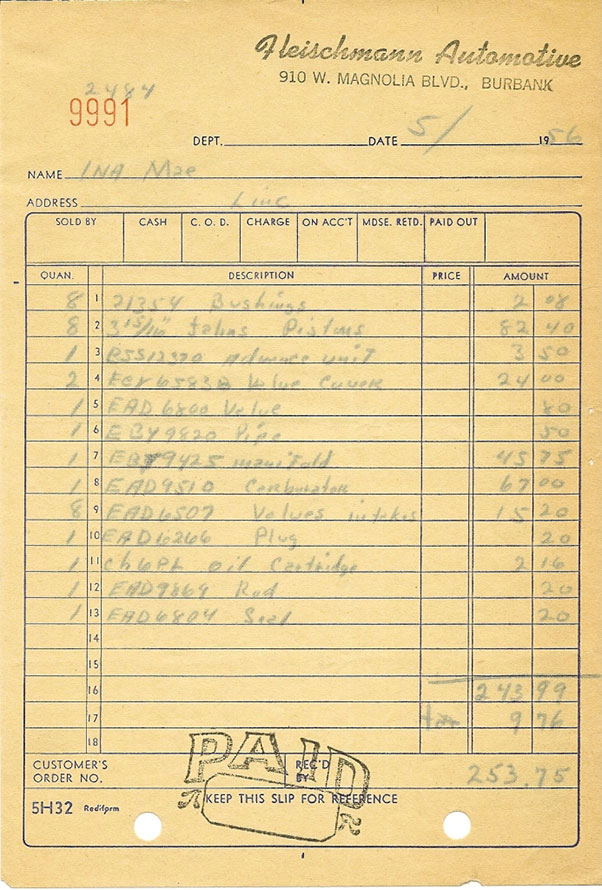 Fleischmann Automotive
910 W. MAGNOLIA BLVD., BURBANK
2484
9991
DEPT. DATE 5/ 1956
NAME INA Mae
ADDRESS Linc
SOLD BY CASH C. O. D. CHARGE ON ACC'T MDSE. RETD. PAID OUT
QUAN. DESCRIPTION PRICE AMOUNT
8 1 21354 Bushings 2 08
8 2 3 15/16" Jahns Pistons 82 40
1 3 BSS12370 Advance unit 3 50
2 4 ECY6583B Valve Cover 24 00
1 5 EAD6800 Valve 80
1 6 EBY9820 Pipe 50
1 7 EBY9425 manifold 45 75
1 8 EAD9510 Carburator 67 00
8 9 EAD6507 Valves intakes 15 20
1 10 EAD6266 Plug 20
1 11 Ch6PL oil Cartridge 2 16
1 12 EAD9869 Rod 20
1 13 EAD6804 Seal 20
14
15
16 243 99
17 tax 9 76
18
CUSTOMER'S ORDER NO. REC'D BY 253.75
PAID
5H32 Rediform KEEP THIS SLIP FOR REFERENCE